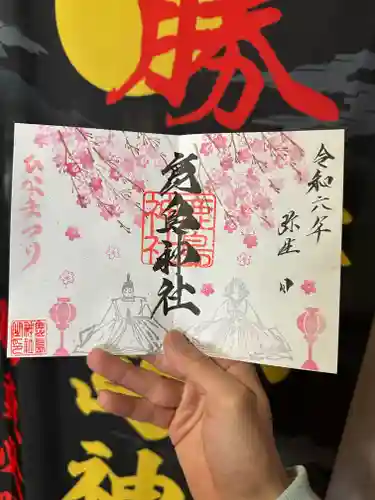 勝
令和六年
弥生
鹿島神社
鹿島
神社
ひなまつり
神